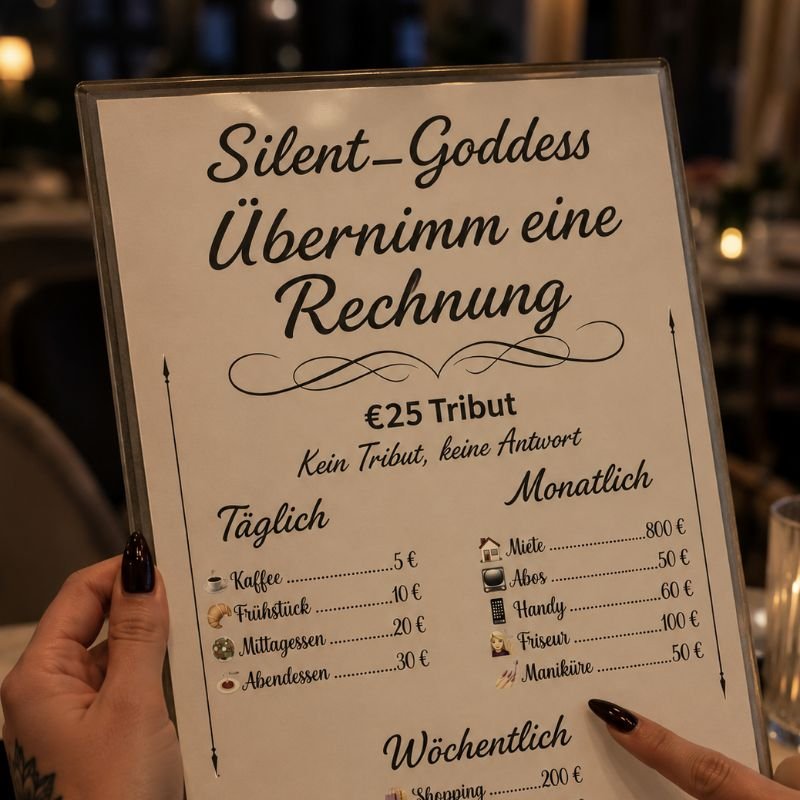 Silent_Goddess
Übernimm eine
Rechnung
€25 Tribut
Kein Tribut, keine Antwort
Täglich
Kaffee ..................... 5 €
Frühstück ................ 10 €
Mittagessen ............. 20 €
Abendessen ............. 30 €
Monatlich
Miete ..................... 800 €
Abos ...................... 50 €
Handy .................... 60 €
Friseur ................... 100 €
Maniküre ................ 50 €
Wöchentlich
Shopping ............ 200 €